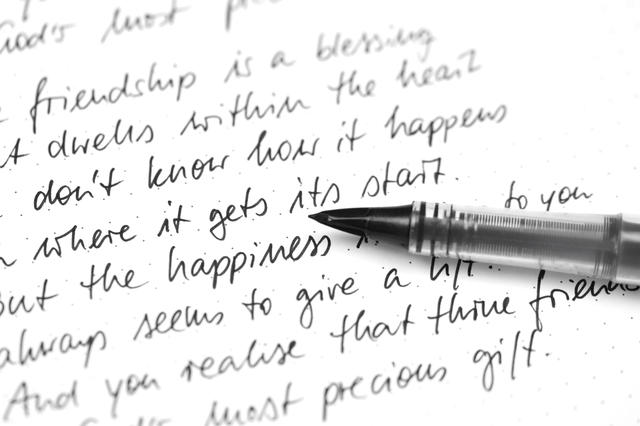 God's most
friendship is a blessing
dwells within the heart
don't know how it happens
where it gets its start.
to you
But the happiness
always seems to give a lift..
And you realise that thine
most precious gift.